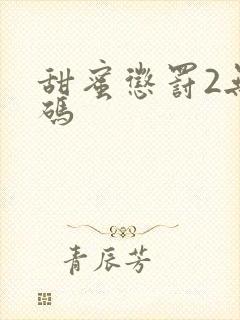 甜蜜懲罰2無
碼
青辰芳